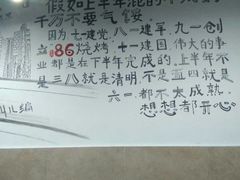 假如上半年混的
千万不要气馁
因为七一建党,八一建军,九一创
业86烧烤,十一建国,伟大的事
业都是在下半年完成的,上半年不
是三八就是清明,不是愚四就是
六一,都不太成熟,
想想都开心